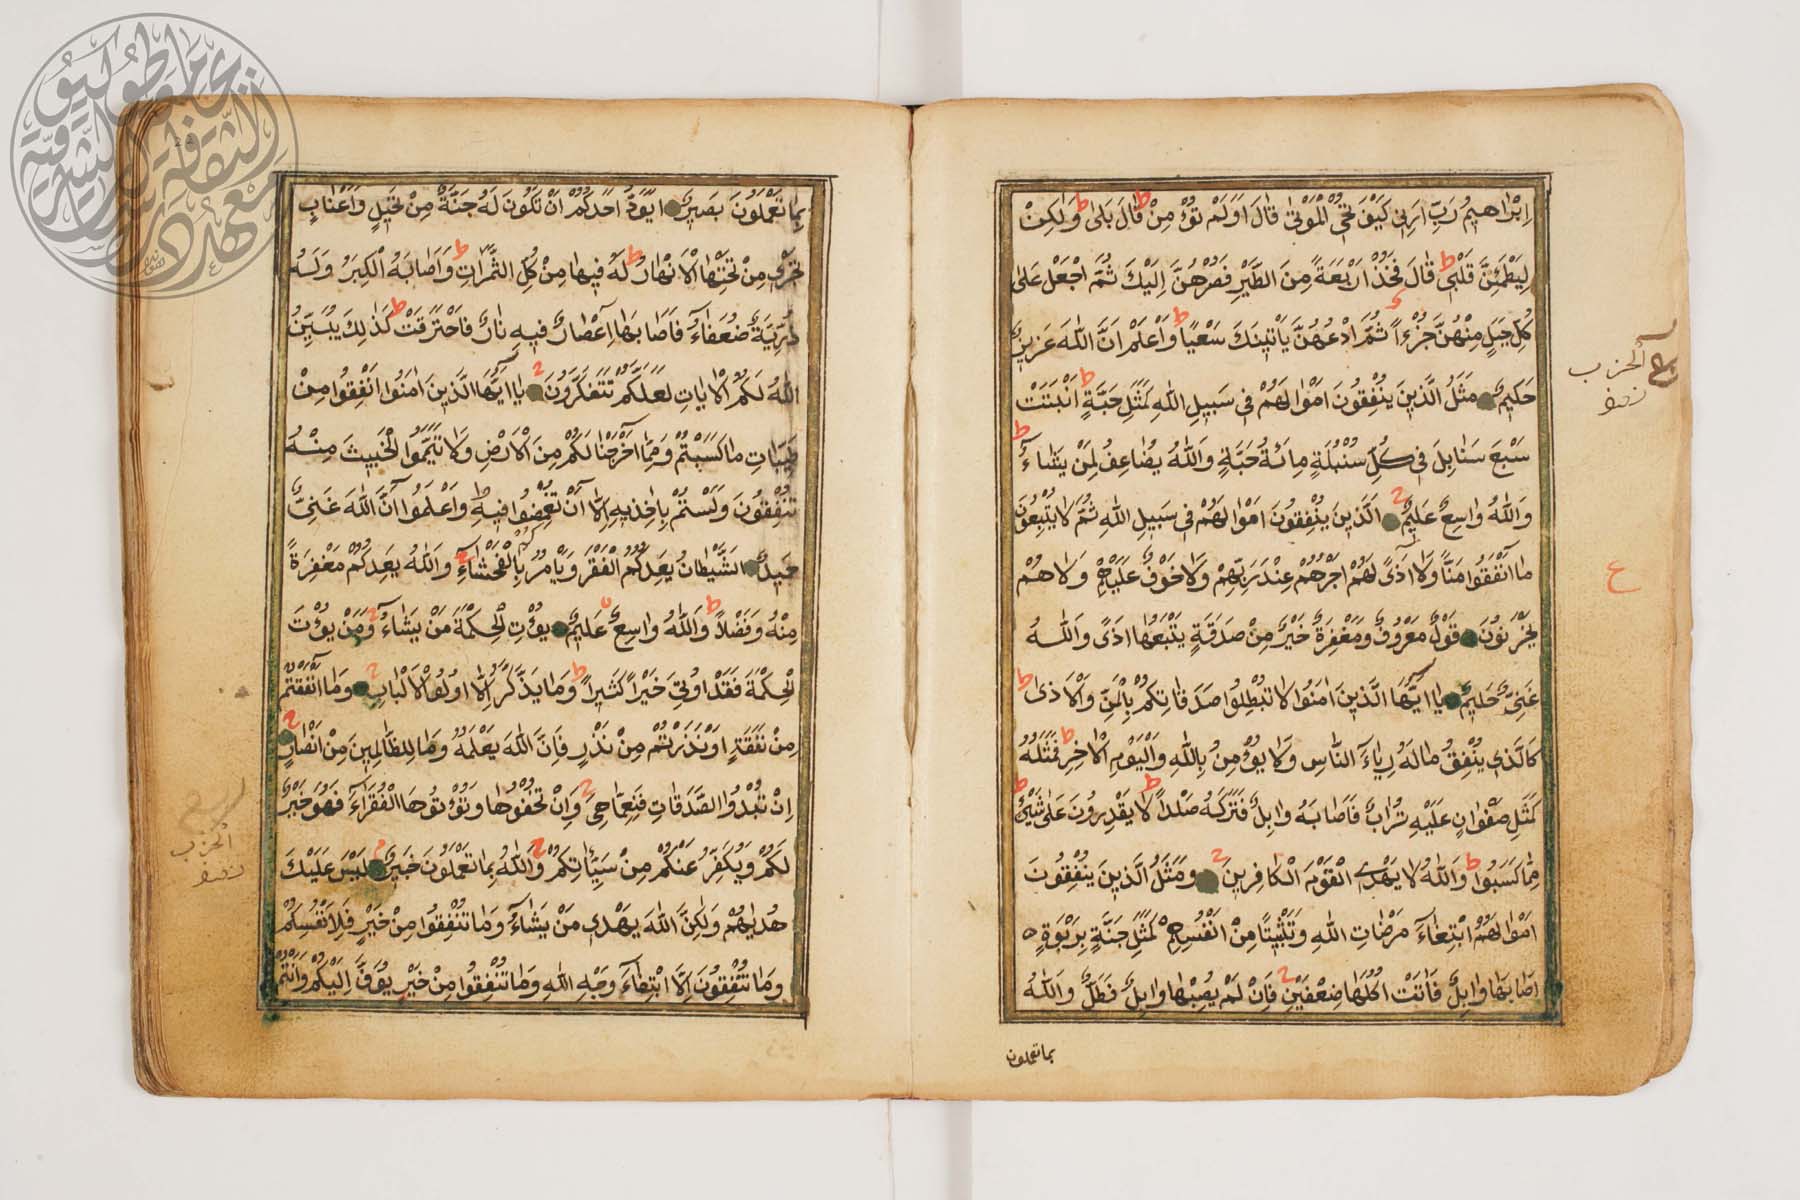 اِبْرٰاه۪يمُ رَبِّ اَرِن۪ي كَيْفَ تُحْيِ الْمَوْتٰى قٰالَ اَوَلَمْ تُؤْمِنْ قٰالَ بَلٰى وَلٰكِنْ
لِيَطْمَئِنَّ قَلْب۪ي قٰالَ فَخُذْ اَرْبَعَةً مِنَ الطَّيْرِ فَصُرْهُنَّ اِلَيْكَ ثُمَّ اجْعَلْ عَلٰى
كُلِّ جَبَلٍ مِنْهُنَّ جُزْءاً ثُمَّ ادْعُهُنَّ يَأْت۪ينَكَ سَعْياً وَاعْلَمْ اَنَّ اللّٰهَ عَز۪يزٌ
حَك۪يمٌ مَثَلُ الَّذ۪ينَ يُنْفِقُونَ اَمْوٰالَهُمْ ف۪ي سَب۪يلِ اللّٰهِ كَمَثَلِ حَبَّةٍ اَنْبَتَتْ
سَبْعَ سَنٰابِلَ ف۪ي كُلِّ سُنْبُلَةٍ مِائَةُ حَبَّةٍ وَاللّٰهُ يُضٰاعِفُ لِمَنْ يَشٰاءُ
وَاللّٰهُ وٰاسِعٌ عَل۪يمٌ اَلَّذ۪ينَ يُنْفِقُونَ اَمْوٰالَهُمْ ف۪ي سَب۪يلِ اللّٰهِ ثُمَّ لٰا يُتْبِعُونَ
مٰا اَنْفَقُوا مَنًّا وَلٰا اَذًى لَهُمْ اَجْرُهُمْ عِنْدَ رَبِّهِمْ وَلٰا خَوْفٌ عَلَيْهِمْ وَلٰا هُمْ
يَحْزَنُونَ قَوْلٌ مَعْرُوفٌ وَمَغْفِرَةٌ خَيْرٌ مِنْ صَدَقَةٍ يَتْبَعُهٰا اَذًى وَاللّٰهُ
غَنِيٌّ حَل۪يمٌ يٰا اَيُّهَا الَّذ۪ينَ اٰمَنُوا لٰا تُبْطِلُوا صَدَقٰاتِكُمْ بِالْمَنِّ وَالْاَذٰى
كَالَّذ۪ي يُنْفِقُ مٰالَهُ رِيٰاءَ النّٰاسِ وَلٰا يُؤْمِنُ بِاللّٰهِ وَالْيَوْمِ الْاٰخِرِ فَمَثَلُهُ
كَمَثَلِ صَفْوٰانٍ عَلَيْهِ تُرٰابٌ فَاَصٰابَهُ وٰابِلٌ فَتَرَكَهُ صَلْداً لٰا يَقْدِرُونَ عَلٰى شَيْءٍ
مِمّٰا كَسَبُوا وَاللّٰهُ لٰا يَهْدِي الْقَوْمَ الْكٰافِر۪ينَ وَمَثَلُ الَّذ۪ينَ يُنْفِقُونَ
اَمْوٰالَهُمُ ابْتِغٰاءَ مَرْضٰاتِ اللّٰهِ وَتَثْب۪يتًا مِنْ اَنْفُسِهِمْ كَمَثَلِ جَنَّةٍ بِرَبْوَةٍ
اَصٰابَهٰا وٰابِلٌ فَاٰتَتْ اُكُلَهٰا ضِعْفَيْنِ فَاِنْ لَمْ يُصِبْهٰا وٰابِلٌ فَطَلٌّ وَاللّٰهُ
بما تعملون
الحزب
نصف
ع
بِمٰا تَعْمَلُونَ بَص۪يرٌ اَيَوَدُّ اَحَدُكُمْ اَنْ تَكُونَ لَهُ جَنَّةٌ مِنْ نَخ۪يلٍ وَاَعْنٰابٍ
تَجْر۪ي مِنْ تَحْتِهَا الْاَنْهٰارُ لَهُ ف۪يهٰا مِنْ كُلِّ الثَّمَرٰاتِ وَاَصٰابَهُ الْكِبَرُ وَلَهُ
ذُرِّيَّةٌ ضُعَفٰاءُ فَاَصٰابَهٰا اِعْصٰارٌ ف۪يهِ نٰارٌ فَاحْتَرَقَتْ كَذٰلِكَ يُبَيِّنُ
اللّٰهُ لَكُمُ الْاٰيٰاتِ لَعَلَّكُمْ تَتَفَكَّرُونَ يٰا اَيُّهَا الَّذ۪ينَ اٰمَنُوا اَنْفِقُوا مِنْ
طَيِّبٰاتِ مٰا كَسَبْتُمْ وَمِمّٰا اَخْرَجْنٰا لَكُمْ مِنَ الْاَرْضِ وَلٰا تَيَمَّمُوا الْخَب۪يثَ مِنْهُ
تُنْفِقُونَ وَلَسْتُمْ بِاٰخِذ۪يهِ اِلّٰا اَنْ تُغْمِضُوا ف۪يهِ وَاعْلَمُوا اَنَّ اللّٰهَ غَنِيٌّ
حَم۪يدٌ اَلشَّيْطٰانُ يَعِدُكُمُ الْفَقْرَ وَيَأْمُرُكُمْ بِالْفَحْشٰاءِ وَاللّٰهُ يَعِدُكُمْ مَغْفِرَةً
مِنْهُ وَفَضْلاً وَاللّٰهُ وٰاسِعٌ عَل۪يمٌ يُؤْتِ الْحِكْمَةَ مَنْ يَشٰاءُ وَمَنْ يُؤْتَ
الْحِكْمَةَ فَقَدْ اُوتِيَ خَيْراً كَث۪يراً وَمٰا يَذَّكَّرُ اِلّٰا اُولُوا الْاَلْبٰابِ وَمٰا اَنْفَقْتُمْ
مِنْ نَفَقَةٍ اَوْ نَذَرْتُمْ مِنْ نَذْرٍ فَاِنَّ اللّٰهَ يَعْلَمُهُ وَمٰا لِلظّٰالِم۪ينَ مِنْ اَنْصٰارٍ
اِنْ تُبْدُوا الصَّدَقٰاتِ فَنِعِمّٰا هِيَ وَاِنْ تُخْفُوهٰا وَتُؤْتُوهَا الْفُقَرٰاءَ فَهُوَ خَيْرٌ
لَكُمْ وَيُكَفِّرُ عَنْكُمْ مِنْ سَيِّئٰاتِكُمْ وَاللّٰهُ بِمٰا تَعْمَلُونَ خَب۪يرٌ لَيْسَ عَلَيْكَ
هُدٰيهُمْ وَلٰكِنَّ اللّٰهَ يَهْد۪ي مَنْ يَشٰاءُ وَمٰا تُنْفِقُوا مِنْ خَيْرٍ فَلِاَنْفُسِكُمْ
وَمٰا تُنْفِقُونَ اِلَّا ابْتِغٰاءَ وَجْهِ اللّٰهِ وَمٰا تُنْفِقُوا مِنْ خَيْرٍ يُوَفَّ اِلَيْكُمْ وَاَنْتُمْ
الحزب
نصف